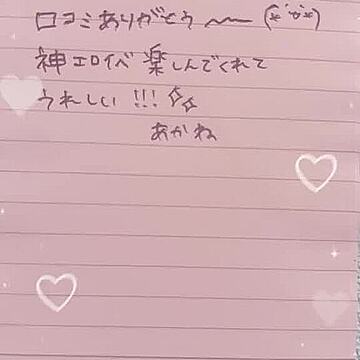 口コミありがとう〜〜(*´▽`*)
神エロイベ楽しんでくれて
うれしい!!!☆☆
あかね